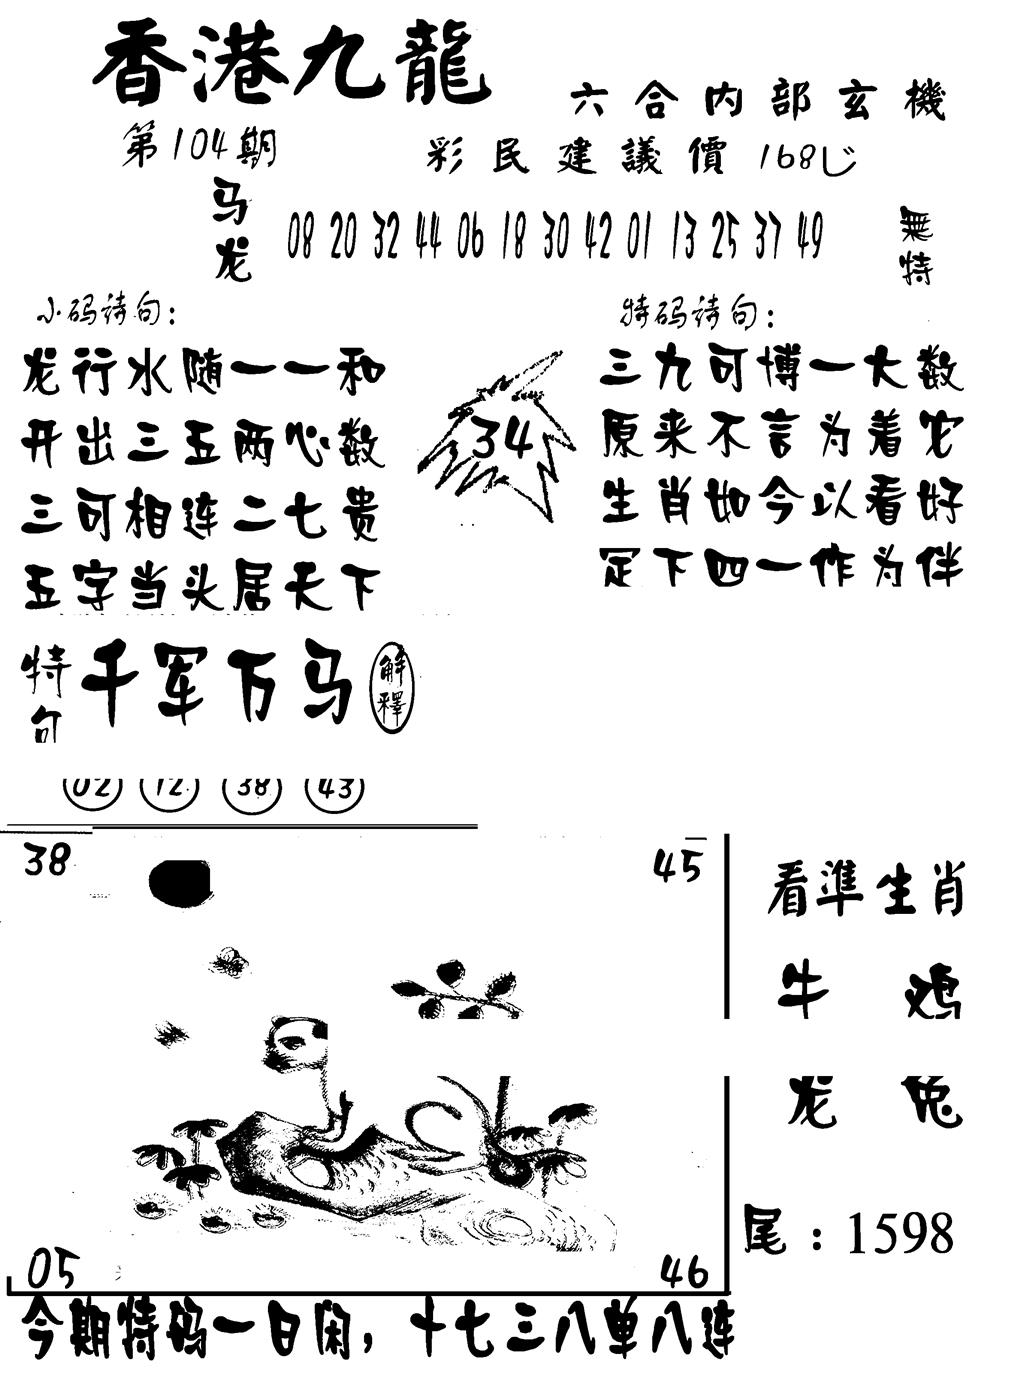 香港九龍
六合内部玄機
第104期
彩民建議價168
马龙
08 20 32 44 06 18 30 42 01 13 25 37 49
無特
小码诗句：
龙行水随一一和
开出三五两心数
三可相连二七贵
五字当头居天下
34
特码诗句：
三九可博一大数
原来不言为着它
生肖如今以看好
定下四一作为伴
特句
千军万马
解釋
02 12 38 43
38
45
看準生肖
牛 鸡
龙 兔
尾：1598
05
46
今期特码一日闲，十七三八单八连